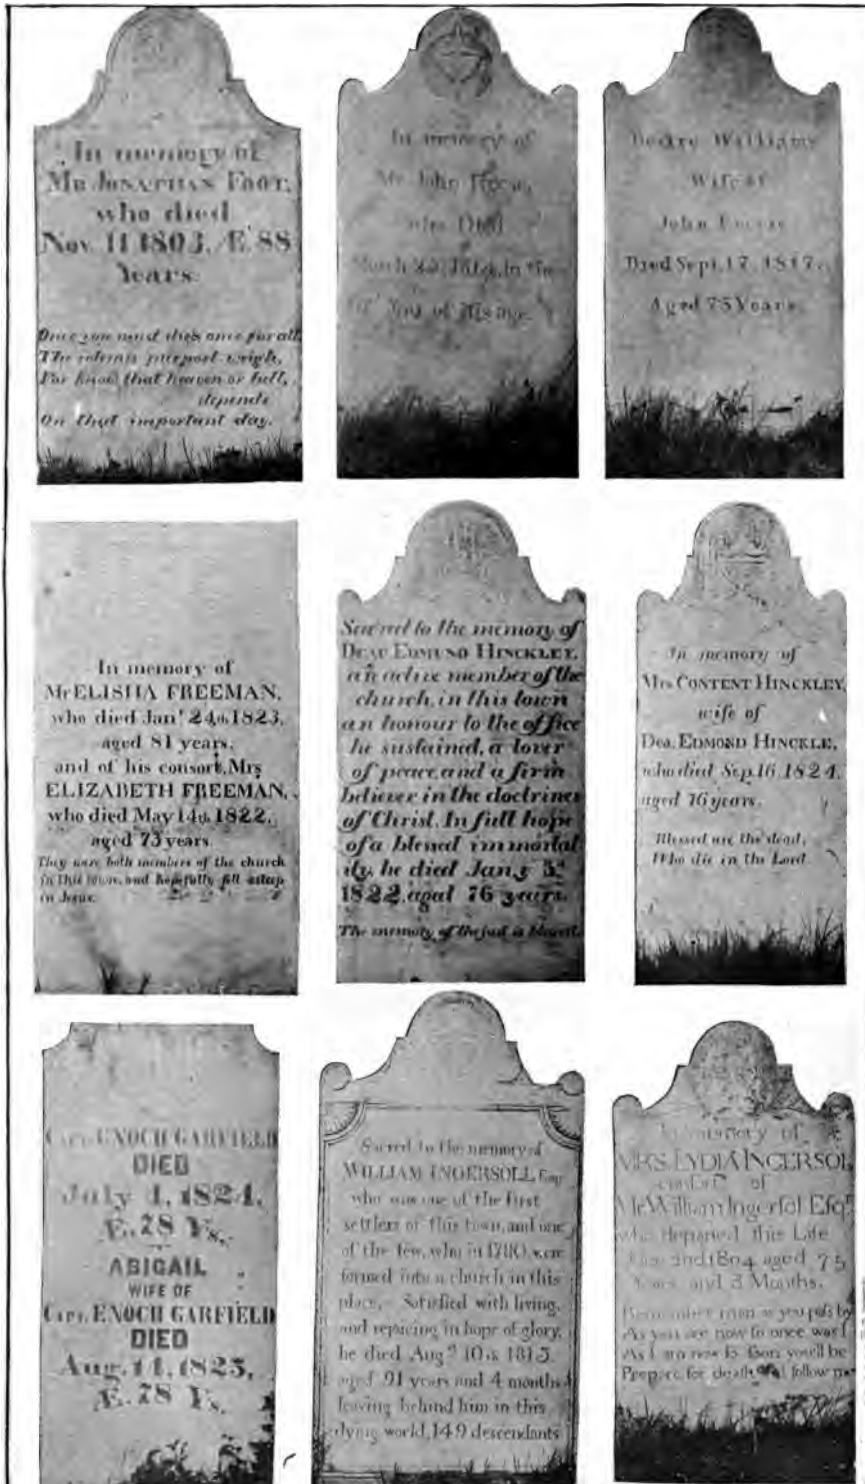 In memory of
Mr JONATHAN FOOT,
who died
Nov. 11 1803. Æ. 88
Years.
Once you must die once for all
The solemn purport weigh,
For know that heaven or hell,
depends
On that important day.
In memory of
Mr John
who Died
March in the
Year of His age.
Desire Williams
Wife of
John
Died Sept. 17, 1817,
Aged 75 Years.
In memory of
Mr ELISHA FREEMAN,
who died Jany 24th 1823,
aged 81 years,
and of his consort, Mrs
ELIZABETH FREEMAN,
who died May 14th 1822,
aged 73 years
They were both members of the church
in this town, and hopefully fell asleep
in Jesus.
Sacred to the memory of
DEAC EDMUND HINCKLEY,
an active member of the
church, in this town
an honour to the office
he sustained, a lover
of peace, and a firm
believer in the doctrines
of Christ. In full hope
of a blessed immortal
ity, he died Jany 3d
1822, aged 76 years.
The memory of the just is blessed.
In memory of
Mrs CONTENT HINCKLEY,
wife of
Dea. EDMOND HINCKLE,
who died Sep. 16, 1824,
aged 76 years.
Blessed are the dead,
Who die in the Lord
Capt. ENOCH GARFIELD
DIED
July 4, 1824,
Æ. 78 Ys.
ABIGAIL
WIFE OF
Capt. ENOCH GARFIELD
DIED
Aug. 14, 1825,
Æ. 78 Ys.
Sacred to the memory of
WILLIAM INGERSOLL, Esq
who was one of the first
settlers of this town, and one
of the few, who in 1780, were
formed into a church in this
place. Satisfied with living,
and rejoicing in hope of glory,
he died Augst 10th 1815,
aged 91 years and 4 months
leaving behind him in this
dying world, 149 descendants
In memory of
MRS. LYDIA INGERSOL
consort of
Mr William Ingersol Esqr
who departed this Life
2nd 1804 aged 75
Years and 3 Months.
Remember man as you pass by
As you are now so once was I
As I am now so soon you'll be
Prepare for death and follow me